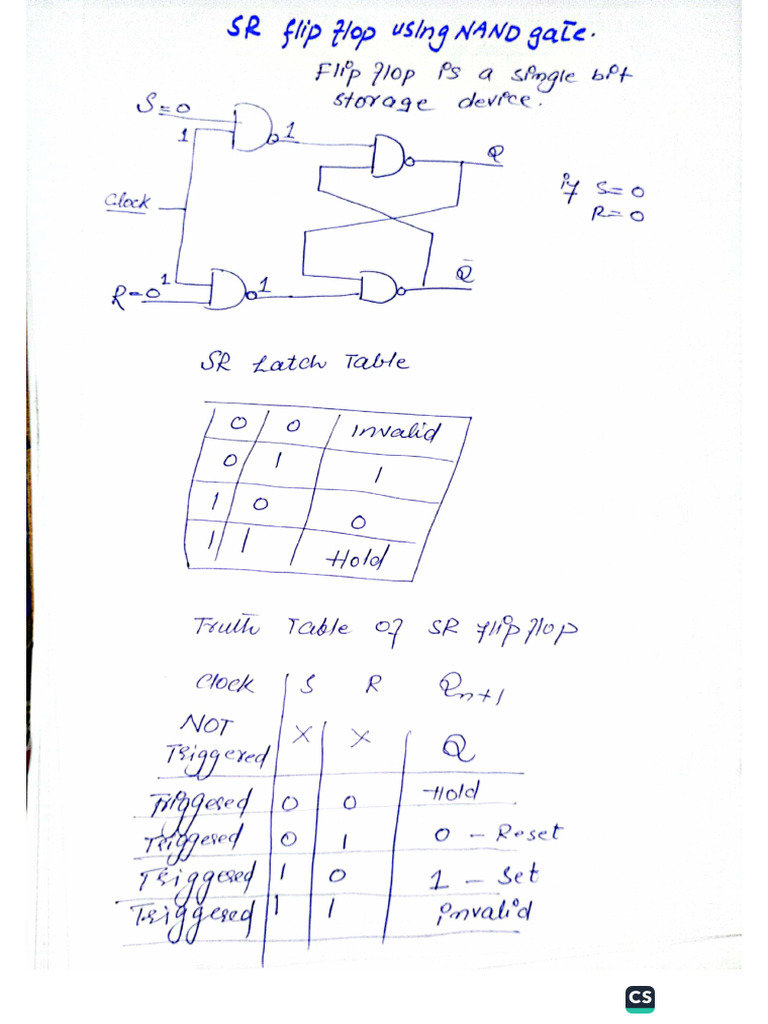 SR flip flop using NAND gate.
Flip flop is a single bit
storage device.
S=0
1
1
Q
if S=0
R=0
Clock
Q̅
1
1
R=0
SR Latch Table
0 0 Invalid
0 1 1
1 0 0
1 1 Hold
Truth Table of SR flip flop
Clock S R Qn+1
NOT
Triggered X X Q
Triggered 0 0 Hold
Triggered 0 1 0 - Reset
Triggered 1 0 1 - Set
Triggered 1 1 invalid
CS